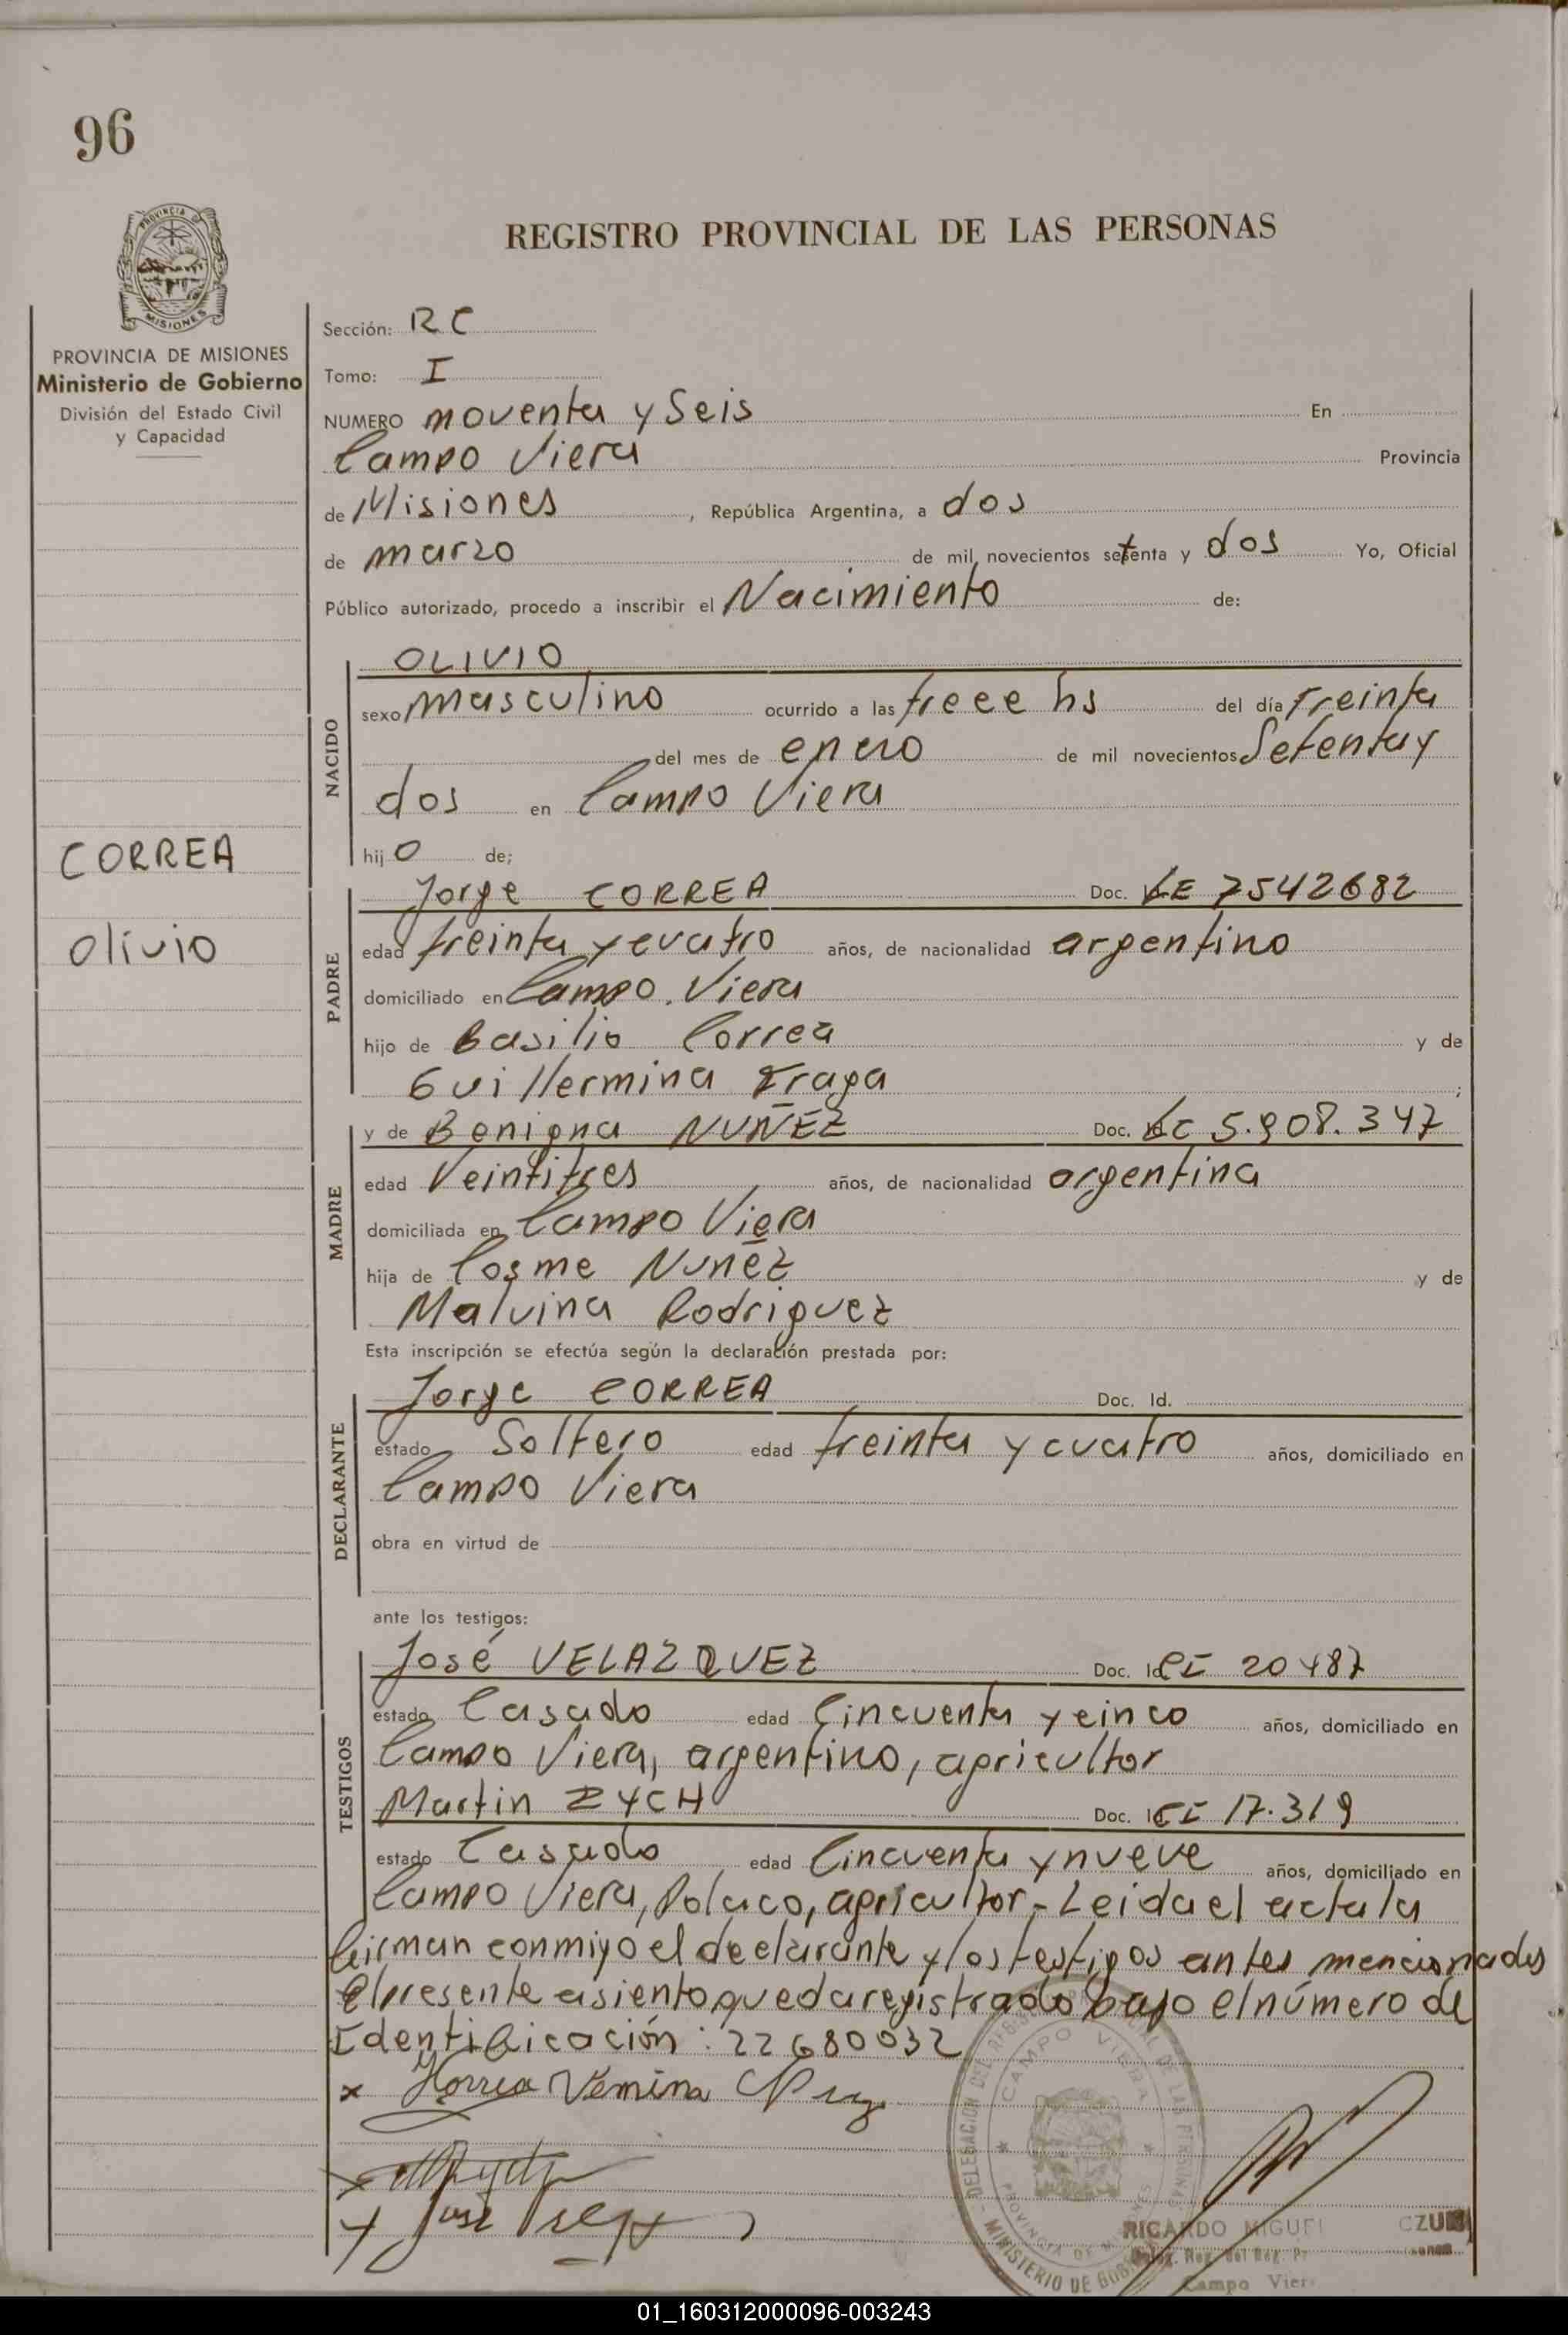 96
PROVINCIA DE
MISIONES
PROVINCIA DE MISIONES
Ministerio de Gobierno
División del Estado Civil
y Capacidad
CORREA
Olivio
REGISTRO PROVINCIAL DE LAS PERSONAS
Sección: RC
Tomo: I
NUMERO noventa y Seis En
Campo Viera Provincia
de Misiones, República Argentina, a dos
de marzo de mil novecientos setenta y dos Yo, Oficial
Público autorizado, procedo a inscribir el Nacimiento de:
NACIDO
OLIVIO
sexo masculino ocurrido a las trece hs del día treinta
del mes de enero de mil novecientos Setenta y
dos en Campo Viera
hijo de;
PADRE
Jorge CORREA Doc. LE 7542682
edad treinta y cuatro años, de nacionalidad argentino
domiciliado en Campo Viera
hijo de Basilio Correa y de
Guillermina Fraga;
MADRE
y de Benigna NUÑEZ Doc. LC 5.908.347
edad Veintitres años, de nacionalidad argentina
domiciliada en Campo Viera
hija de Cosme Nuñez y de
Malvina Rodriguez
Esta inscripción se efectúa según la declaración prestada por:
DECLARANTE
Jorge CORREA Doc. Id.
estado Soltero edad treinta y cuatro años, domiciliado en
Campo Viera
obra en virtud de
ante los testigos:
TESTIGOS
José VELAZQUEZ Doc. Id CI 20487
estado Casado edad Cincuenta y cinco años, domiciliado en
Campo Viera, argentino, agricultor
Martin ZYCH Doc. I CI 17.319
estado Casado edad Cincuenta y nueve años, domiciliado en
Campo Viera, Polaco, agricultor - Leida el acta la
firman conmigo el declarante y los testigos antes mencionados
El presente asiento queda registrado bajo el número de
Identificación: 22680032
José
CAMPO VIERA
PROVINCIA DE
MINISTERIO DE
RICARDO MIGUEL
Campo Vier
01_160312000096-003243